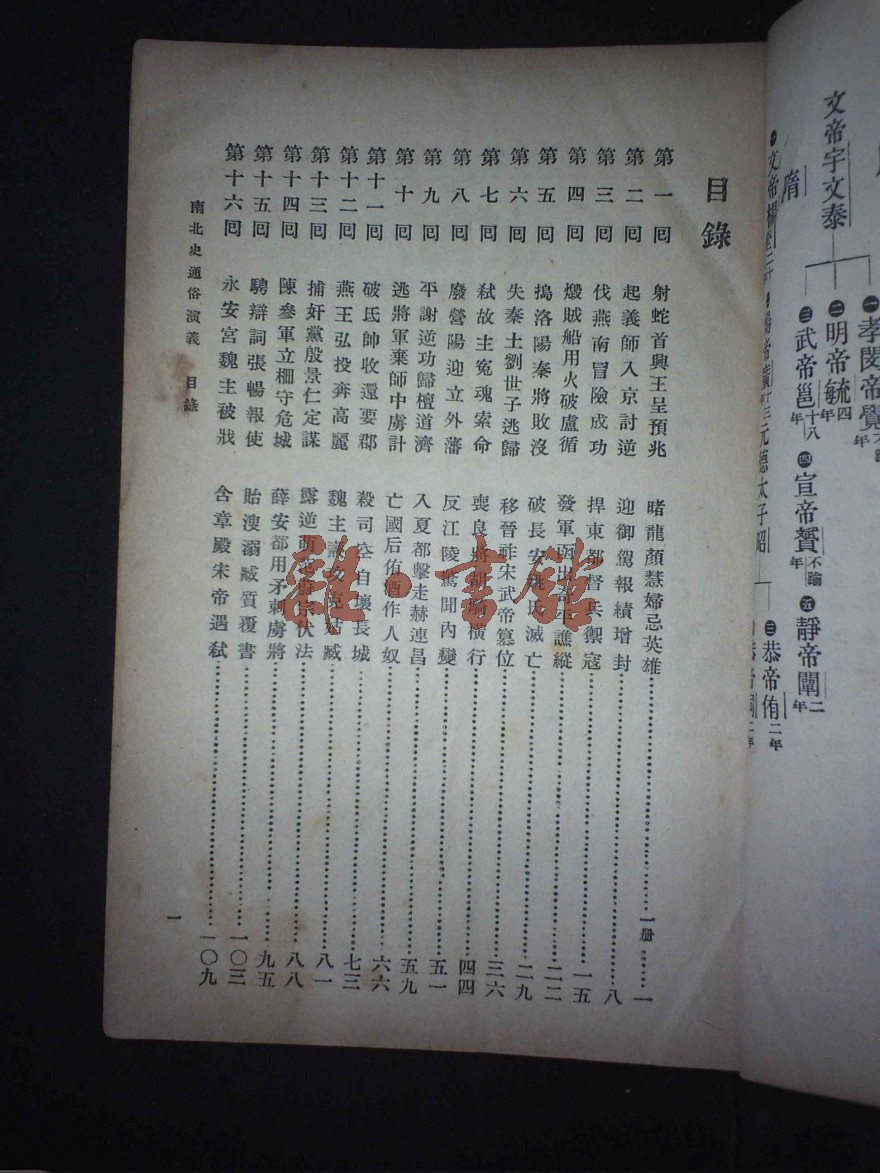 文帝宇文泰
㊀孝閔帝覺
㊁明帝毓四年
㊂武帝邕十八年
㊃宣帝贇不踰年
㊄靜帝闡二年
隋
文帝楊堅
元德太子昭
㊂恭帝侑二年
目錄
第一回 射蛇首興王呈預兆 睹龍顏慧婦忌英雄……一册……一
第二回 起義師入京討逆 迎御駕報績增封……八
第三回 伐燕南冒險成功 捍東都督兵禦寇……一五
第四回 燬賊船用火破盧循 發軍函出奇平譙縱……二二
第五回 搗洛陽秦將敗沒 破長安姚氏滅亡……二九
第六回 失秦土劉世子逃歸 移晉祚宋武帝篡位……三六
第七回 弒故主冤魂索命 喪良將胡騎橫行……四四
第八回 廢營陽迎立外藩 反江陵驚聞內變……五一
第九回 平謝逆功歸檀道濟 入夏都擊走赫連昌……五九
第十回 逃將軍棄師中虜計 亡國后侑酒作人奴……六六
第十一回 破氐帥收還要郡 殺司空自壞長城……七三
第十二回 燕王弘投奔高麗 魏主燾攻克姑臧……八一
第十三回 捕奸黨殷景仁定謀 露逆萌范蔚宗伏法……八八
第十四回 陳參軍立柵守危城 薛安都用矛刺虜將……九五
第十五回 騁辯詞張暢報使 貽溲溺臧質覆書……一〇三
第十六回 永安宮魏主被戕 含章殿宋帝遇弒……一〇九
南北史通俗演義 目錄
一
雜·書館